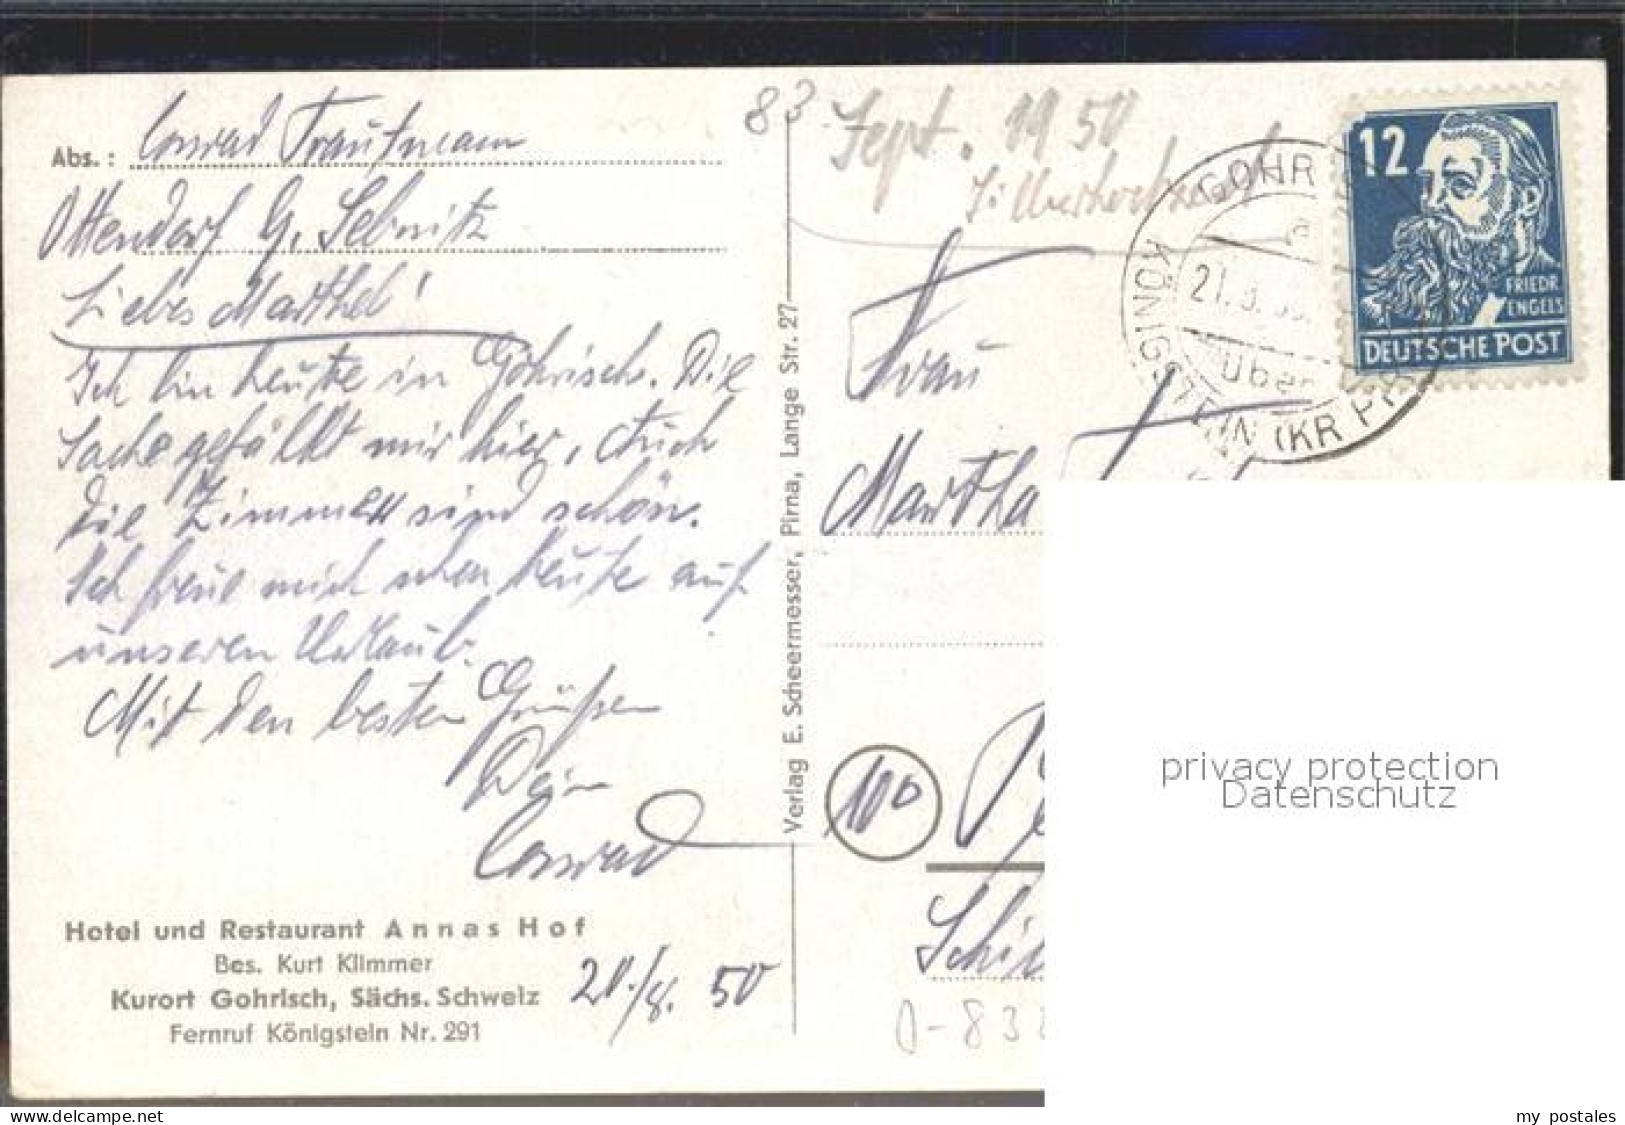 Abs.: Conrad Trautmann
Ottendorf G. Sebnitz
Liebes Marthel!
Ich bin heute in Gohrisch. Die
Sache gefällt mir hier, Auch
die Zimmer sind schön.
Ich freue mich schon heute auf
unseren Urlaub.
Mit den besten Grüßen
Dein
Conrad
Hotel und Restaurant Annas Hof
Bes. Kurt Klimmer
Kurort Gohrisch, Sächs. Schweiz
Fernruf Königstein Nr. 291
20./8. 50
Verlag E. Scheermesser, Pirna, Lange Str. 27
83
Sept. 1950
Silberhochzeit
GOHR
21.
KÖNIGSTEIN (KR PIR
12
FRIEDR
ENGELS
DEUTSCHE POST
Frau
Martha
10
Schi
0-83
privacy protection
Datenschutz
www.delcampe.net
my postales